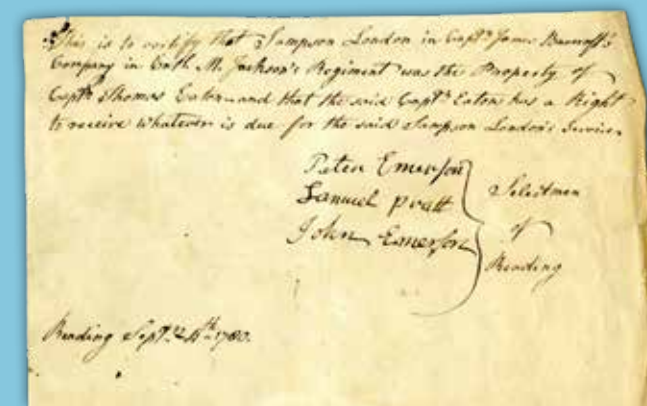 This is to certify that Sampson London in Capt.n James Bancroft's
Company in Coth. M. Jackson's Regiment was the Property of
Capt.n Thomas Eaton and that the said Capt.n Eaton has a Right
to receive whatever is due for the said Sampson London's Service
Peter Emerson
Samuel pratt
John Emerson
Selectmen
of
Reading
Reading Sept.r 1780.